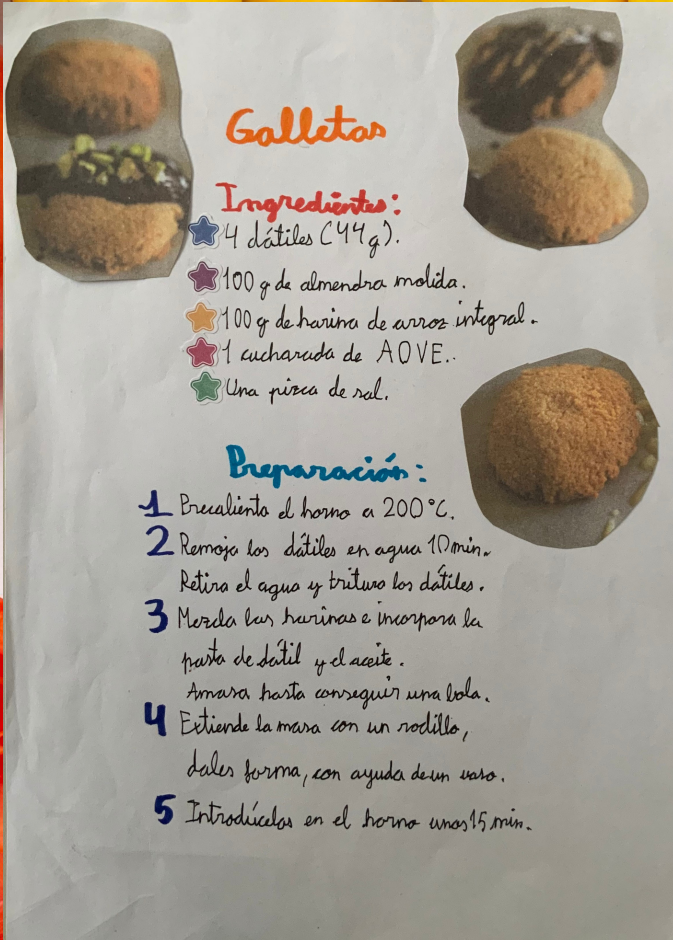 Galletas
Ingredientes:
4 dátiles (44g).
100 g de almendra molida.
100 g de harina de arroz integral.
1 cucharada de AOVE..
Una pizca de sal.
Preparación:
1 Precalienta el horno a 200°C.
2 Remoja los dátiles en agua 10min.
Retira el agua y tritura los dátiles.
3 Mezcla las harinas e incorpora la
pasta de dátil y el aceite.
Amasa hasta conseguir una bola.
4 Extiende la masa con un rodillo,
dales forma, con ayuda de un vaso.
5 Introdúcelas en el horno unos 15 min.